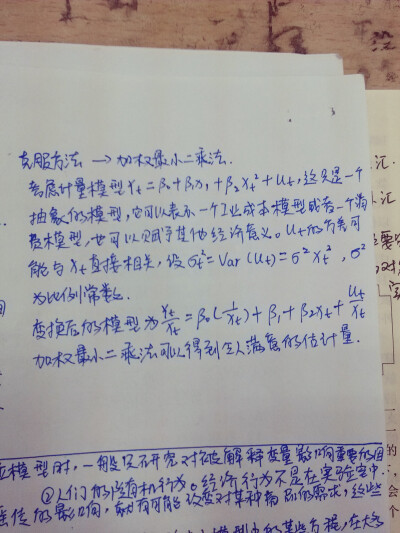 克服方法 → 加权最小二乘法.
考虑计量模型 Yt = β0 + β1x1 + β2xt² + ut, 这只是一个
抽象的模型, 它可以表示一个工业成本模型或者一个消
费模型, 也可以赋予其他经济意义。ut的方差可
能与 xt 直接相关, 设 σt² = Var (ut) = σ² xt², σ²
为比例常数.
变换后的模型为 Yt/xt = β0(1/xt) + β1 + β2xt + ut/xt
加权最小二乘法可以得到令人满意的估计量.
模型时, 一般只研究对被解释变量影响重要的因
②人们的随机行为。经济行为不是在实验室中
的影响, 就有可能改变对某种商品的需求, 这些
模型中的某些方程, 在大多
没
汇
汇